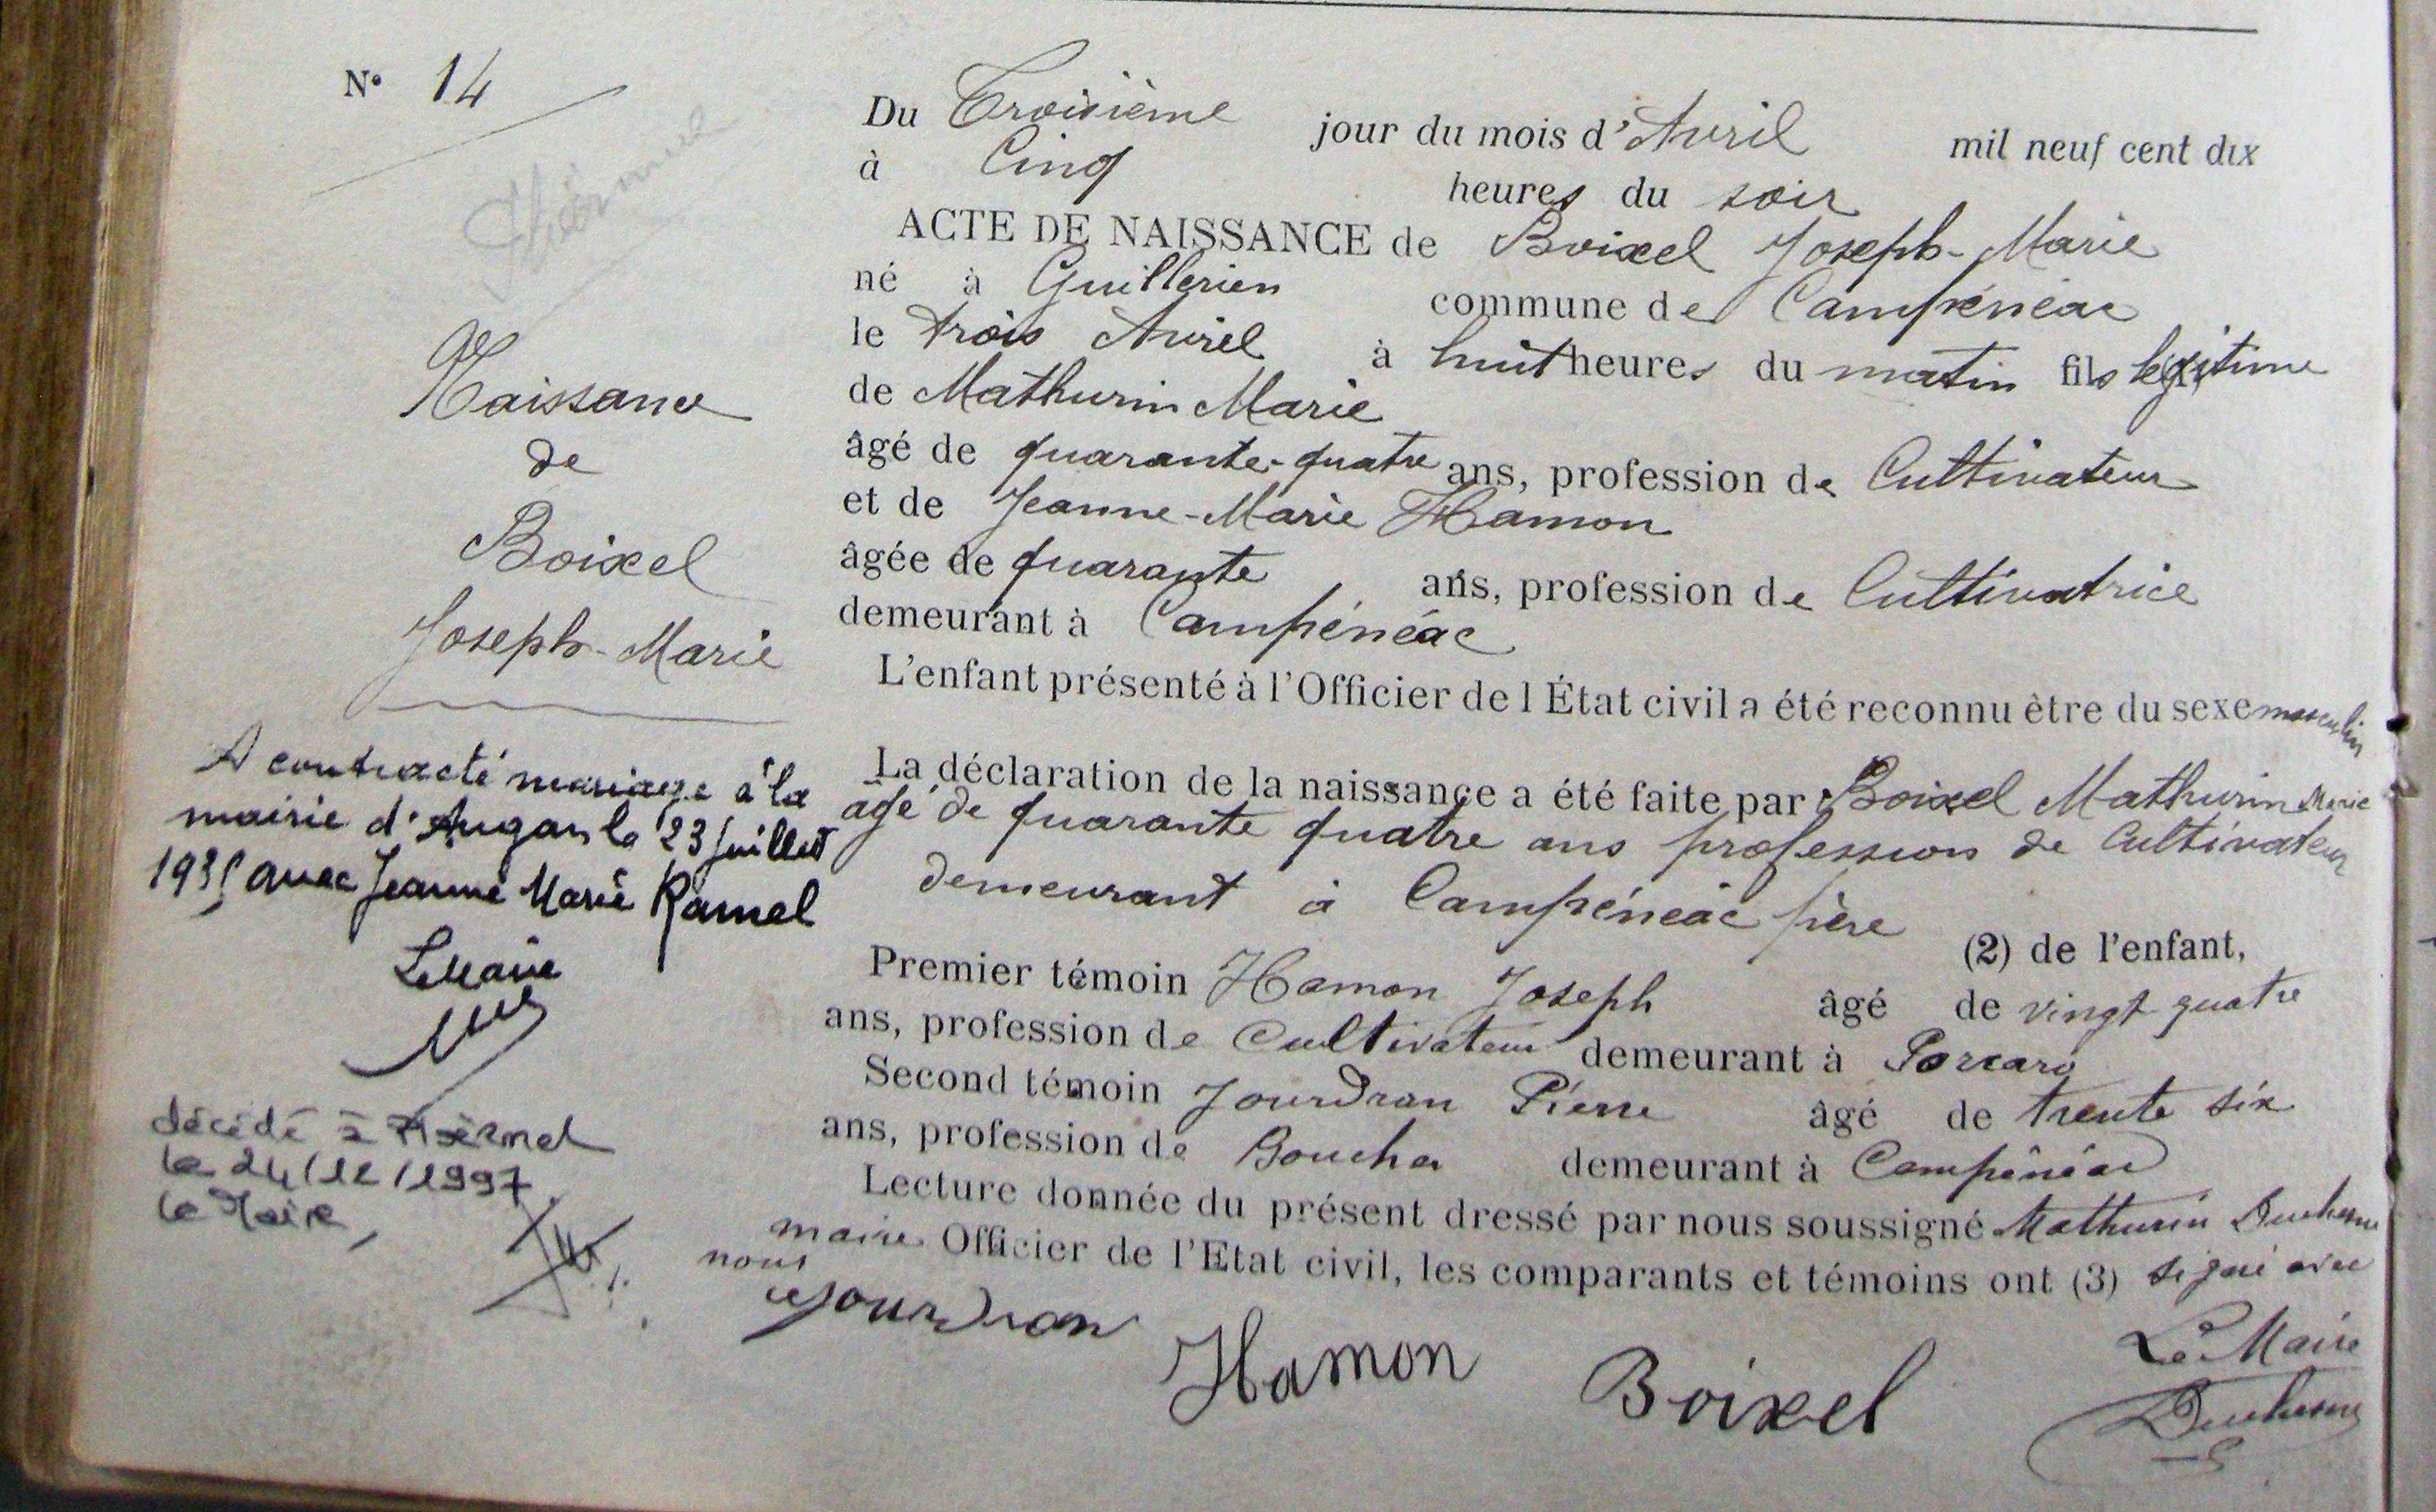 N° 14
Naissance
de
Boixel
Joseph-Marie
A contracté mariage à la
mairie d'Augan le 23 Juillet
1935 avec Jeanne Marie Ramel
Le Maire
décédé à Ploërmel
le 24/12/1997
le Maire,
Du Troisième jour du mois d'Avril mil neuf cent dix
à Cinq heures du soir
ACTE DE NAISSANCE de Boixel Joseph-Marie
né à Guillerien commune de Campénéac
le trois Avril à huit heures du matin fils légitime
de Mathurin Marie
âgé de quarante-quatre ans, profession de Cultivateur
et de Jeanne-Marie Hamon
âgée de quarante ans, profession de Cultivatrice
demeurant à Campénéac
L'enfant présenté à l'Officier de l État civil a été reconnu être du sexe masculin
La déclaration de la naissance a été faite par Boixel Mathurin Marie
âgé de quarante quatre ans profession de Cultivateur
demeurant à Campénéac père (2) de l'enfant,
Premier témoin Hamon Joseph âgé de vingt quatre
ans, profession de Cultivateur demeurant à Porcaro
Second témoin Jourdran Pierre âgé de trente six
ans, profession de Boucher demeurant à Campénéac
Lecture donnée du présent dressé par nous soussigné Mathurin Duchesne
maire Officier de l'Etat civil, les comparants et témoins ont (3) signé avec
nous
Jourdran
Hamon
Boixel
Le Maire
Duchesne